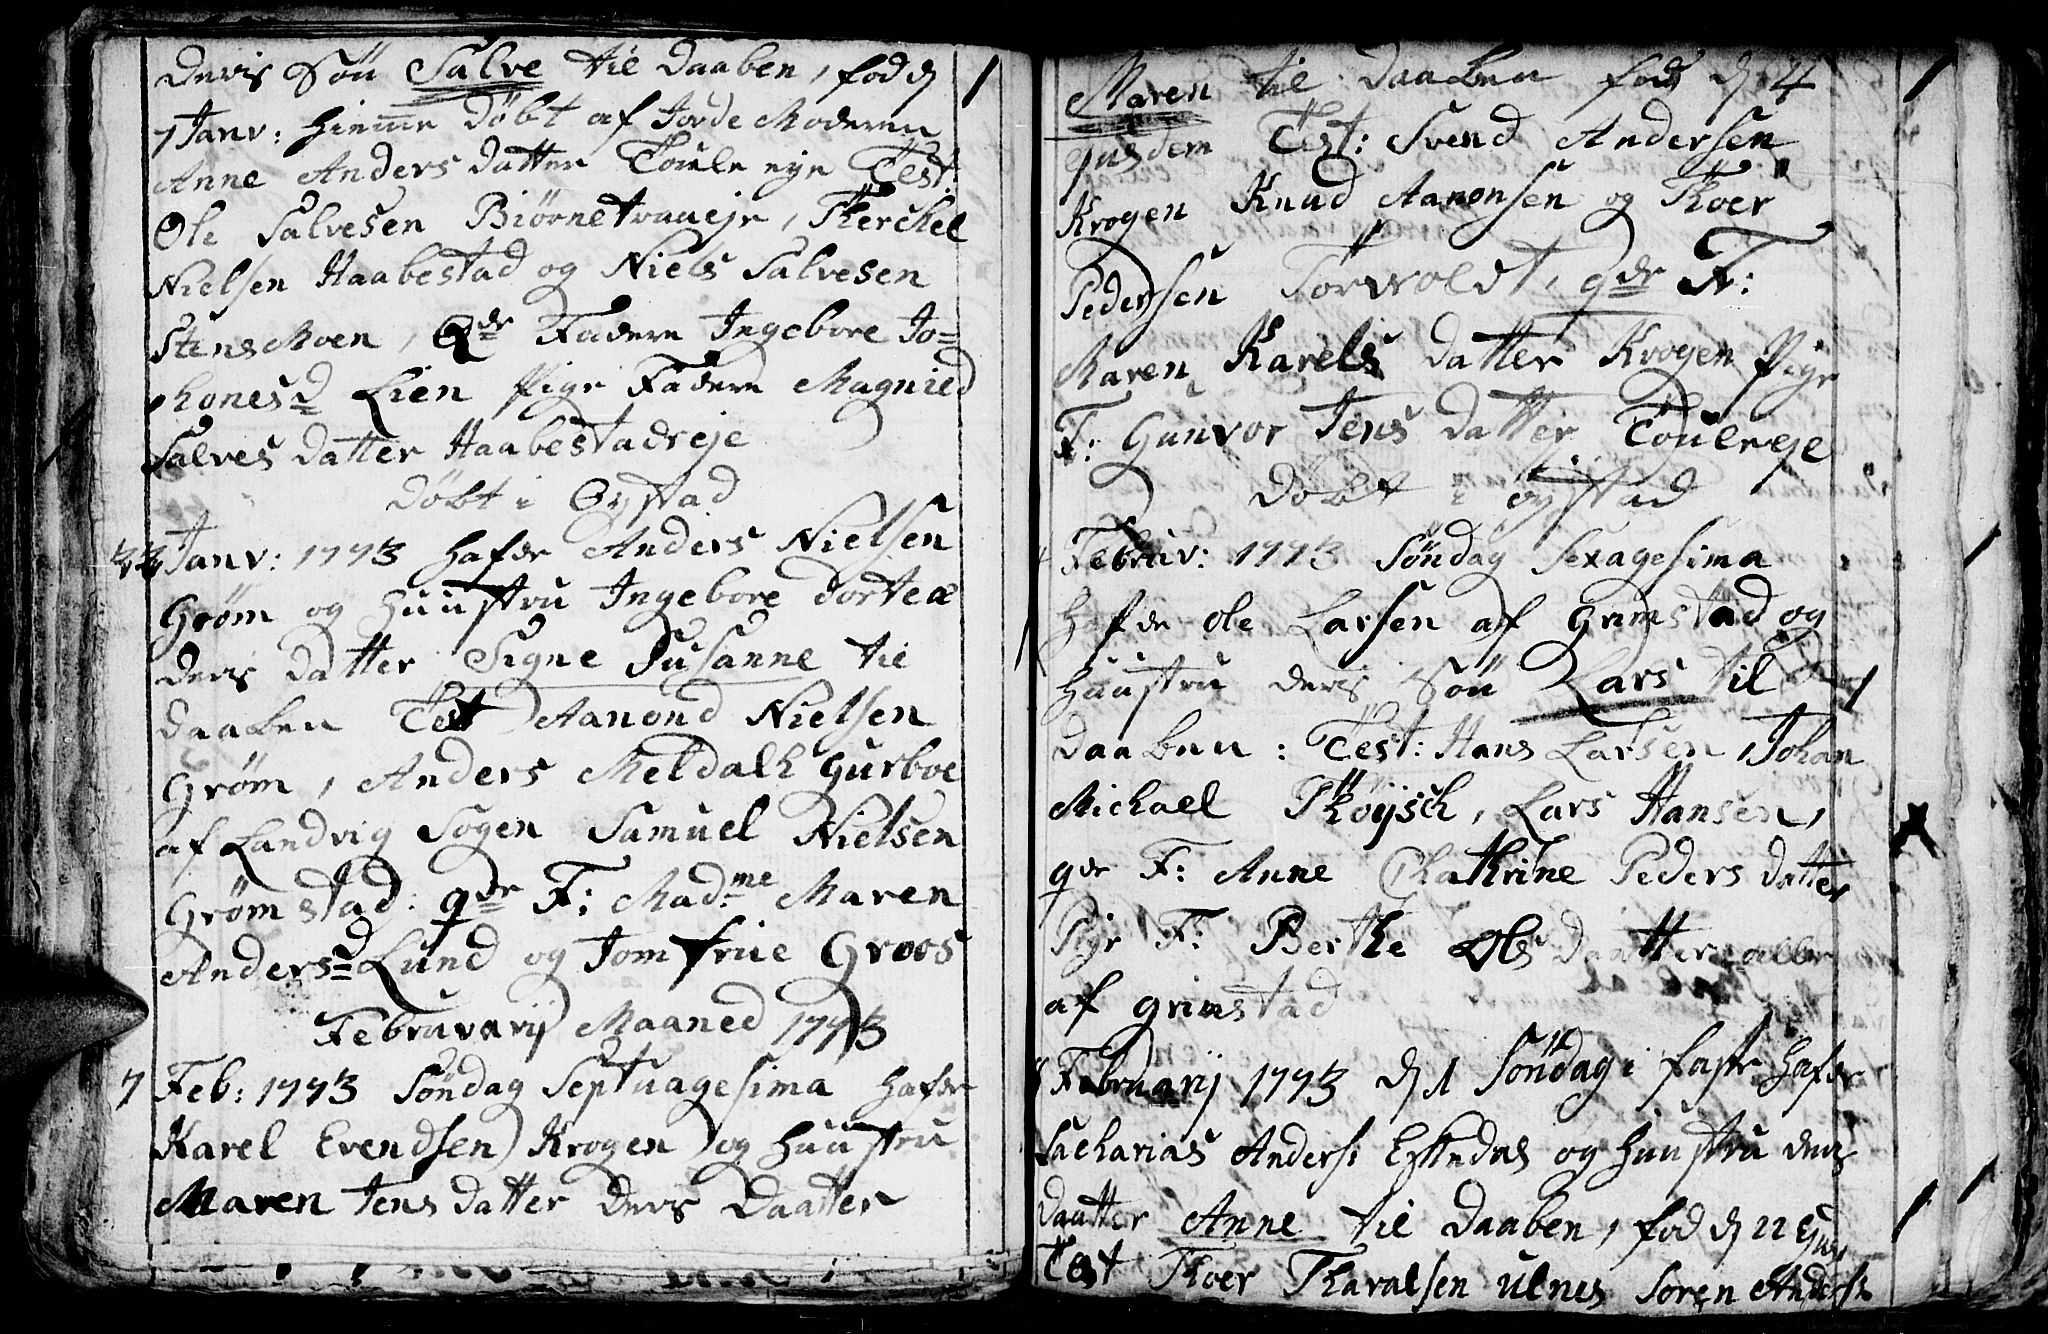 deris Søn Salve til Daaben, fød d
7 Janv: hiemme døbt af Jorde Moderen
Anne Anders datter Touleeye Test
Ole Salvesen Biørnetraaeje, Therchel
Nielsen Haabestad og Niels Salvesen
StensMoen, Qde Fadere Ingebore Jo=
honesd Lien Pige Fadere Magnild
Salves datter Haabestadeje
Døbt i Øystad
24 Janv: 1773 hafde Anders Nielsen
Grøm og Huustru Ingebore Dorteæ
deris datter Signe Susanne til
daaben Test Aanond Nielsen
Grøm, Anders Meldalh Gurboe
af Landvig Sogen Samuel Nielsen
Grømstad: qde F: Madme Maren
Andersd Lund og Jomfrue Groos
Februvarij Maaned 1773
7 Feb: 1773 Søndag Septuagesima hafde
Karel Evendsen Krogen og Huustru
Maren Jens datter deris Daatter
1
Maren til daaben fød d 4
ejusdem Test: Svend Andersen
Krogen Knud Aanonsen og Thoer
Pedersen Torvoldt, qde F:
Maren Karels datter Krogen Pige
F: Gunvor Jens datter Touleeje
Døbt i Øystad
Februv: 1773 Søndag Sexagesima
hafde Ole Larsen af Grimstad og
huustru deris Søn Lars til
daaben: Test: Hans Larsen, Johan
Michael Thøysch, Lars Hansen,
qde F: Anne Chathrine Peders datter
Pige F: Berthe Ols daatter alle
af Grimstad
Februarij 1773 d 1 Søndag i faste hafde
Sacharias Anders: Eskedal og Huustru deris
daatter Anne til Daaben, fød d 22 Ejus
Test Thoer Tharalsen Ulnes Søren Anders:
1
1
1
1
1